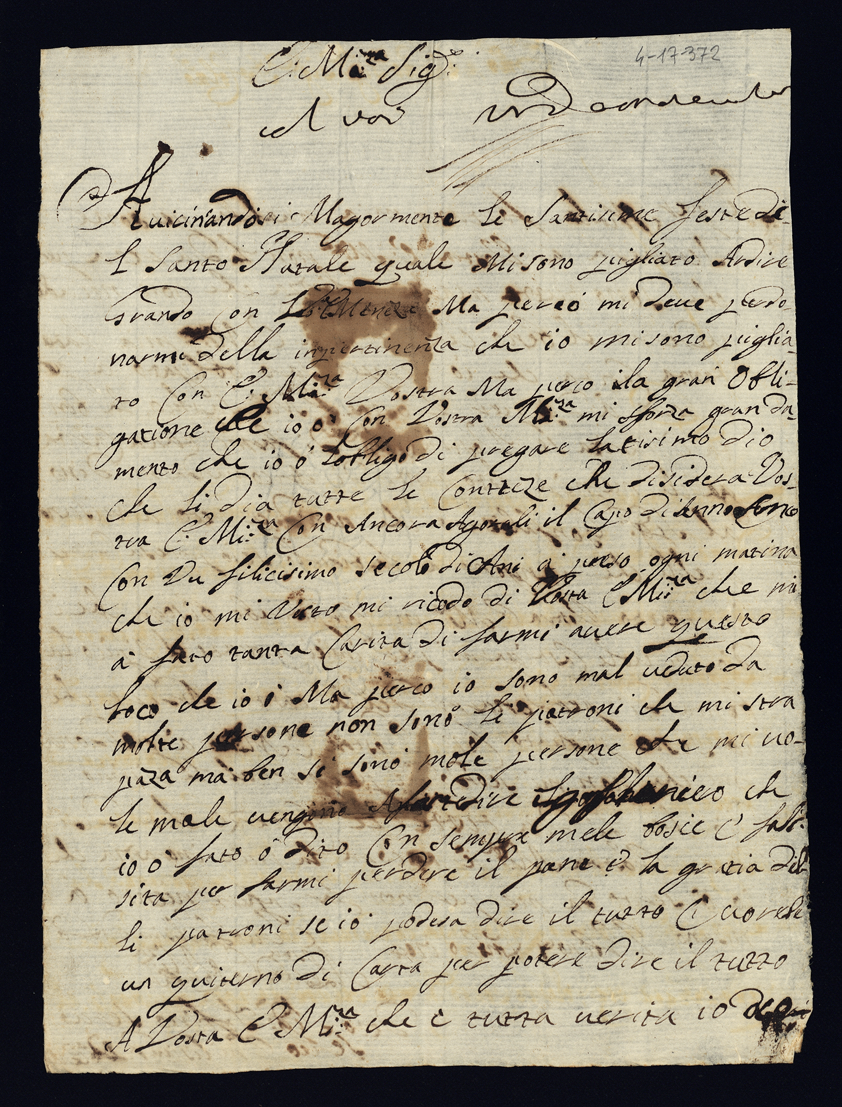 4-17-372
E: Mi:za Sig:e
Avicinandosi Magormente le Santisime feste di
l Santo Natale quale Mi sono pigliato Ardire
Grando Con Ma perco mi deve perdo
narmi della inpertinenza che io mi sono piglia
to Con E: Mi:za Vostra Ma perco ila gran Obli
gatione che io o Con Vostra Mi:za mi sforza gran da
mento che io o lobligo di pregare latisimo dio
che li dia tutte le Conteze che disidera Vos
tra E: Mi:za Con Ancora Agorali il Capo di Anno
Con Un filicisimo secolo di Ani a perso ogni matina
che io mi Vesto mi ricodo di Vosta E Mi:za che mi
a fato tanta Carita di farmi avere questo
loco che io o Ma perco io sono mal veduto da
molte persone non sono le patroni che mi stra
paza ma ben si sono mole persone che mi vo
le male vengino che
io o fato o Dito Con sempre mele bosie e fal
sita per farmi perdere il pane e la gratia del
li patroni se io podesa dire il tutto Ci vorebe
un quiterno di Carta per potere dire il tutto
A Vosta E Mi:za che e tutta verita io